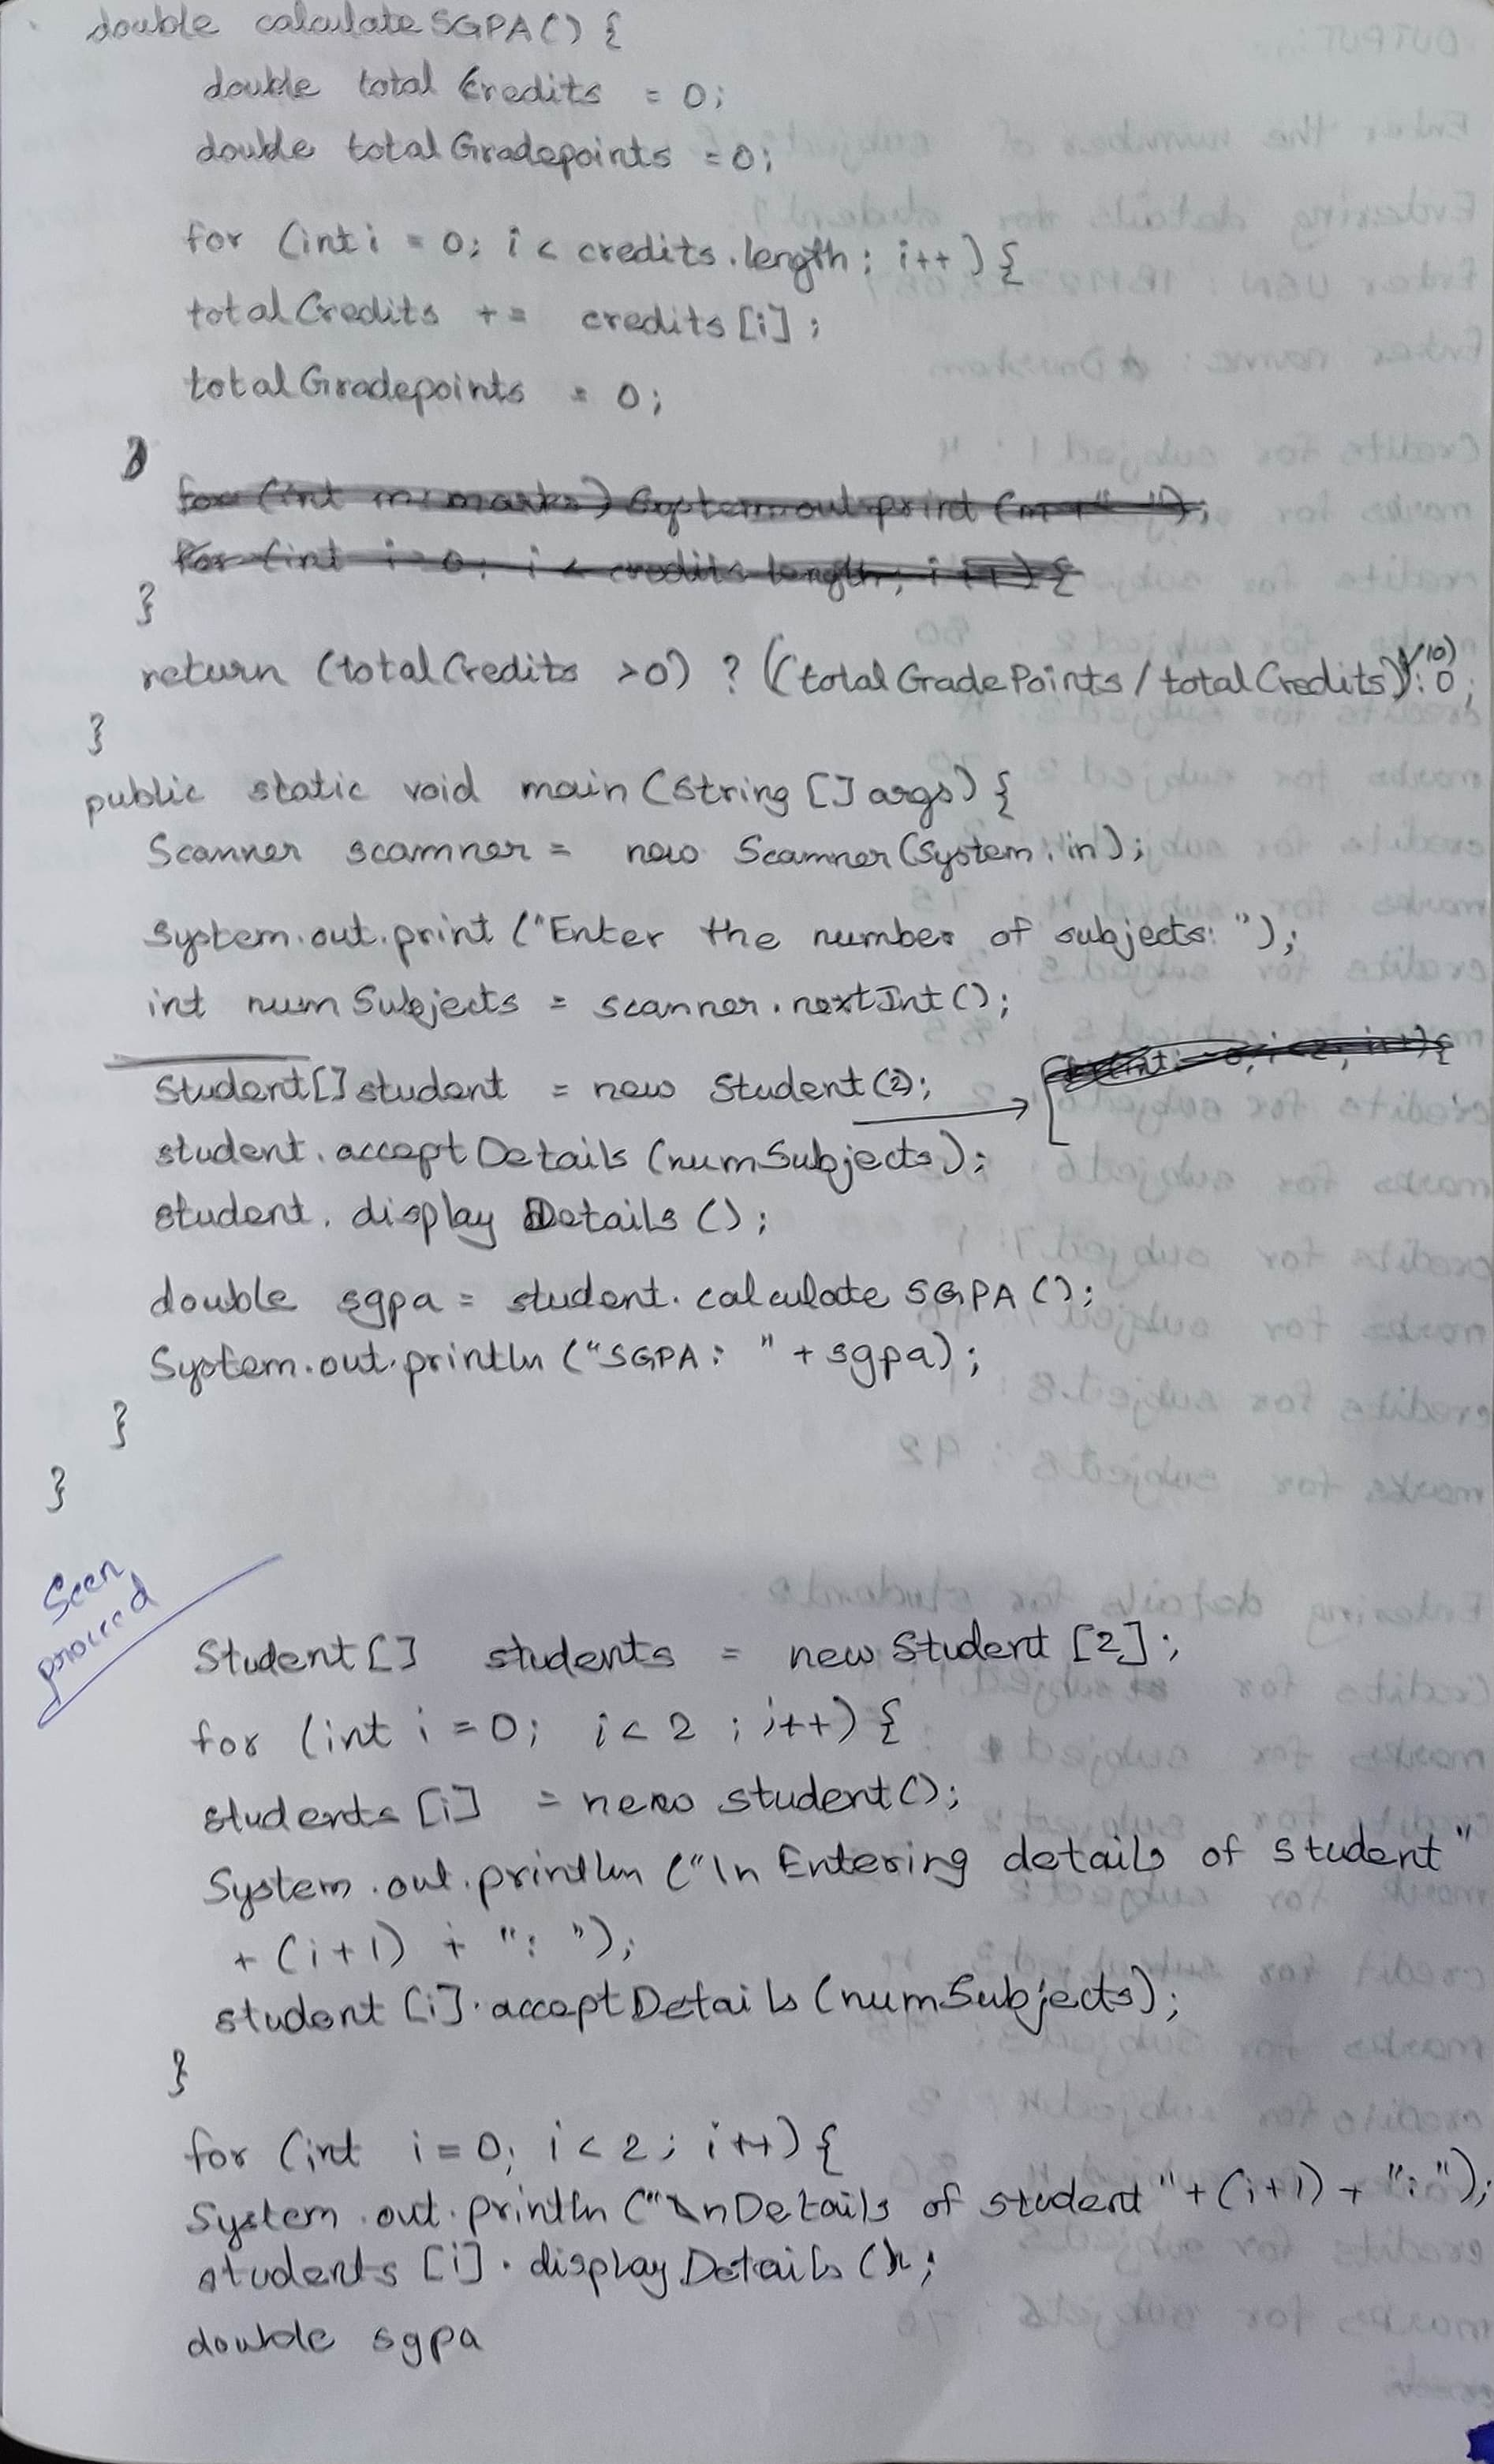 double calculateSGPA() {
double total Credits = 0;
double totalGradepoints = 0;
for (int i = 0; i < credits.length; i++) {
totalCredits += credits[i];
totalGradepoints = 0;
}
for (int m: marks) System.out.print (m + " ");
for (int i = 0; i < credits.length; i++) {
}
return (totalCredits >0) ? ((totalGradePoints / totalCredits)/10) : 0;
}
public static void main (String [] args) {
Scanner scanner = new Scanner (System.in);
System.out.print ("Enter the number of subjects: ");
int numSubjects = scanner.nextInt();
Student[] student = new Student(2);
student.acceptDetails (numSubjects);
student.displayDetails ();
double sgpa = student.calculateSGPA ();
System.out.println ("SGPA: " + sgpa);
}
}
Seen
Student[] students = new Student [2];
for (int i = 0; i < 2 ; i++) {
students [i] = new student();
System.out.println ("\n Entering details of student"
+ (i+1) + ": ");
student [i].acceptDetails (numSubjects);
}
for (int i = 0; i < 2; i++) {
System.out.println ("\nDetails of student" + (i+1) + ":");
students [i].displayDetails ();
double sgpa